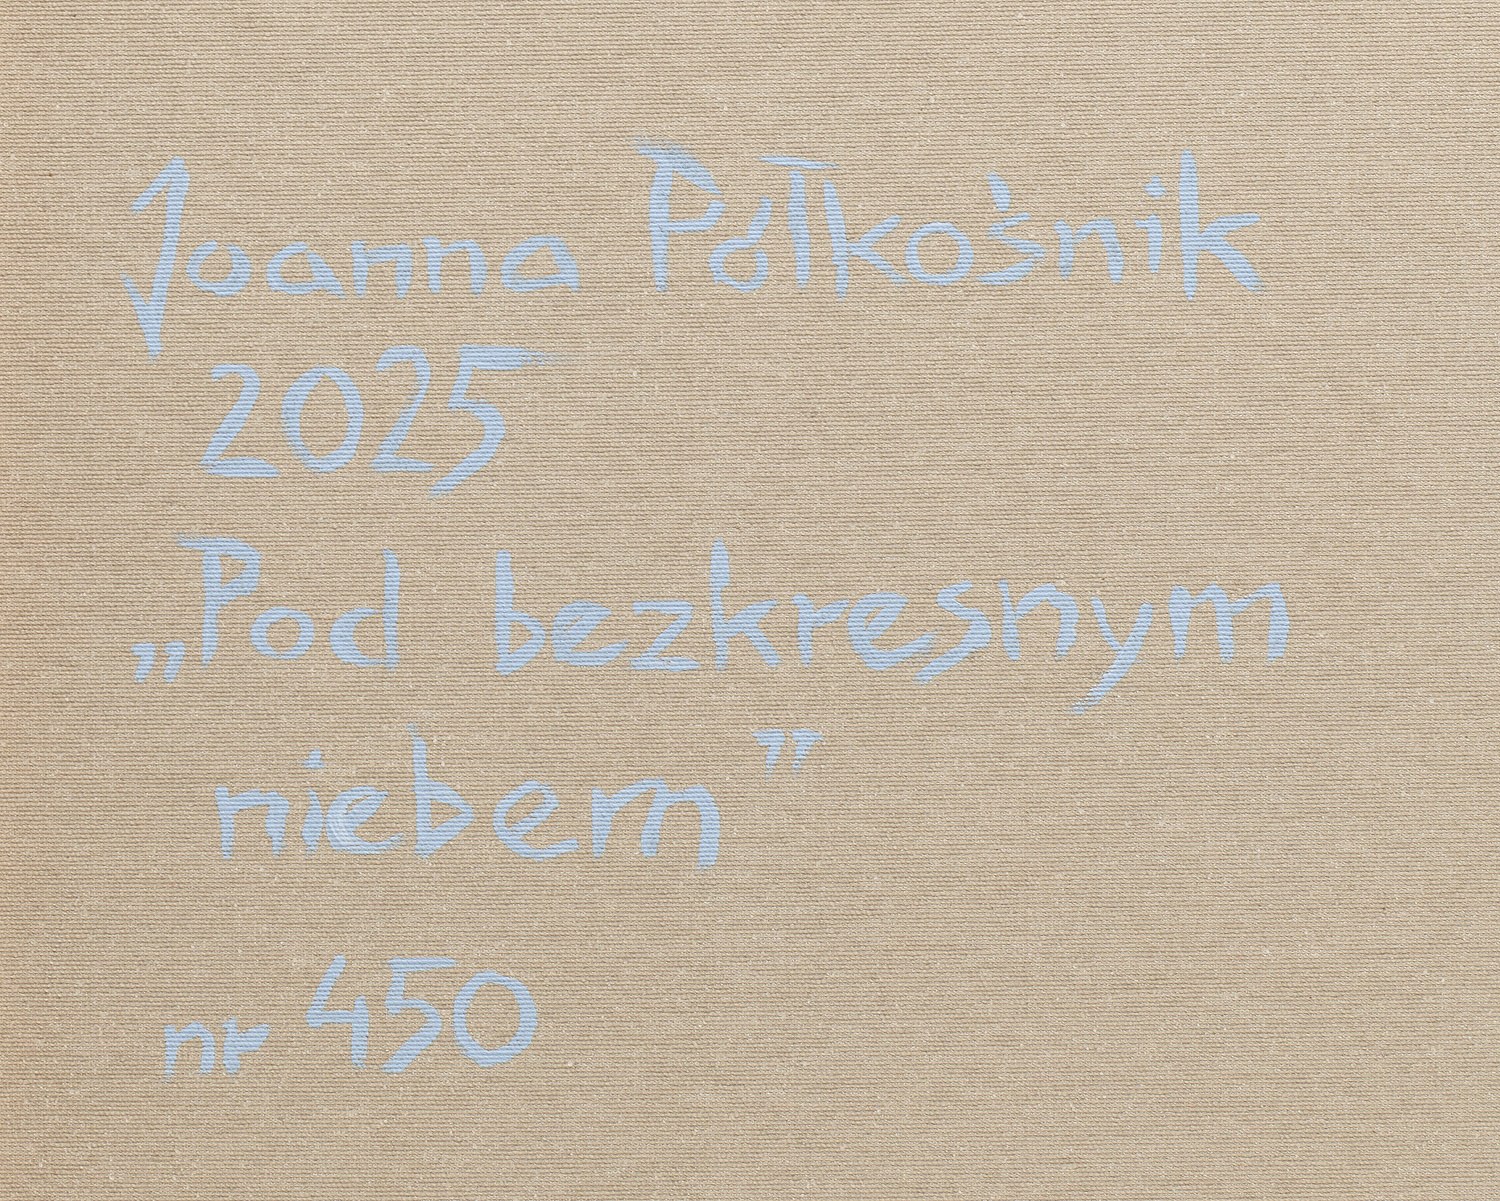 Joanna Półkośnik
2025
„Pod bezkresnym
niebem”
nr 450